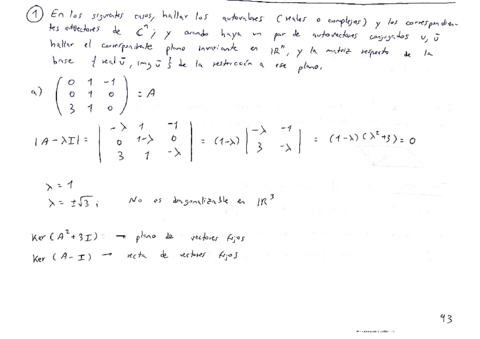 ① En los siguientes casos, hallar los autovalores (reales o complejos) y los correspondien-
tes autovectores de Cⁿ; y cuando haya un par de autovectores conjugados u, ū
hallar el correspondiente plano invariante en ℝⁿ, y la matriz respecto de la
base { real ū, img ū } de la restricción a ese plano.
a) ( 0 1 -1 ; 0 1 0 ; 3 1 0 ) = A
|A-λI| = | -λ 1 -1 ; 0 1-λ 0 ; 3 1 -λ | = (1-λ) | -λ -1 ; 3 -λ | = (1-λ)(λ²+3) = 0
λ = 1
λ = ±√3 i No es diagonalizable en ℝ³
Ker (A²+3I) → plano de vectores fijos
Ker (A-I) → recta de vectores fijos
93